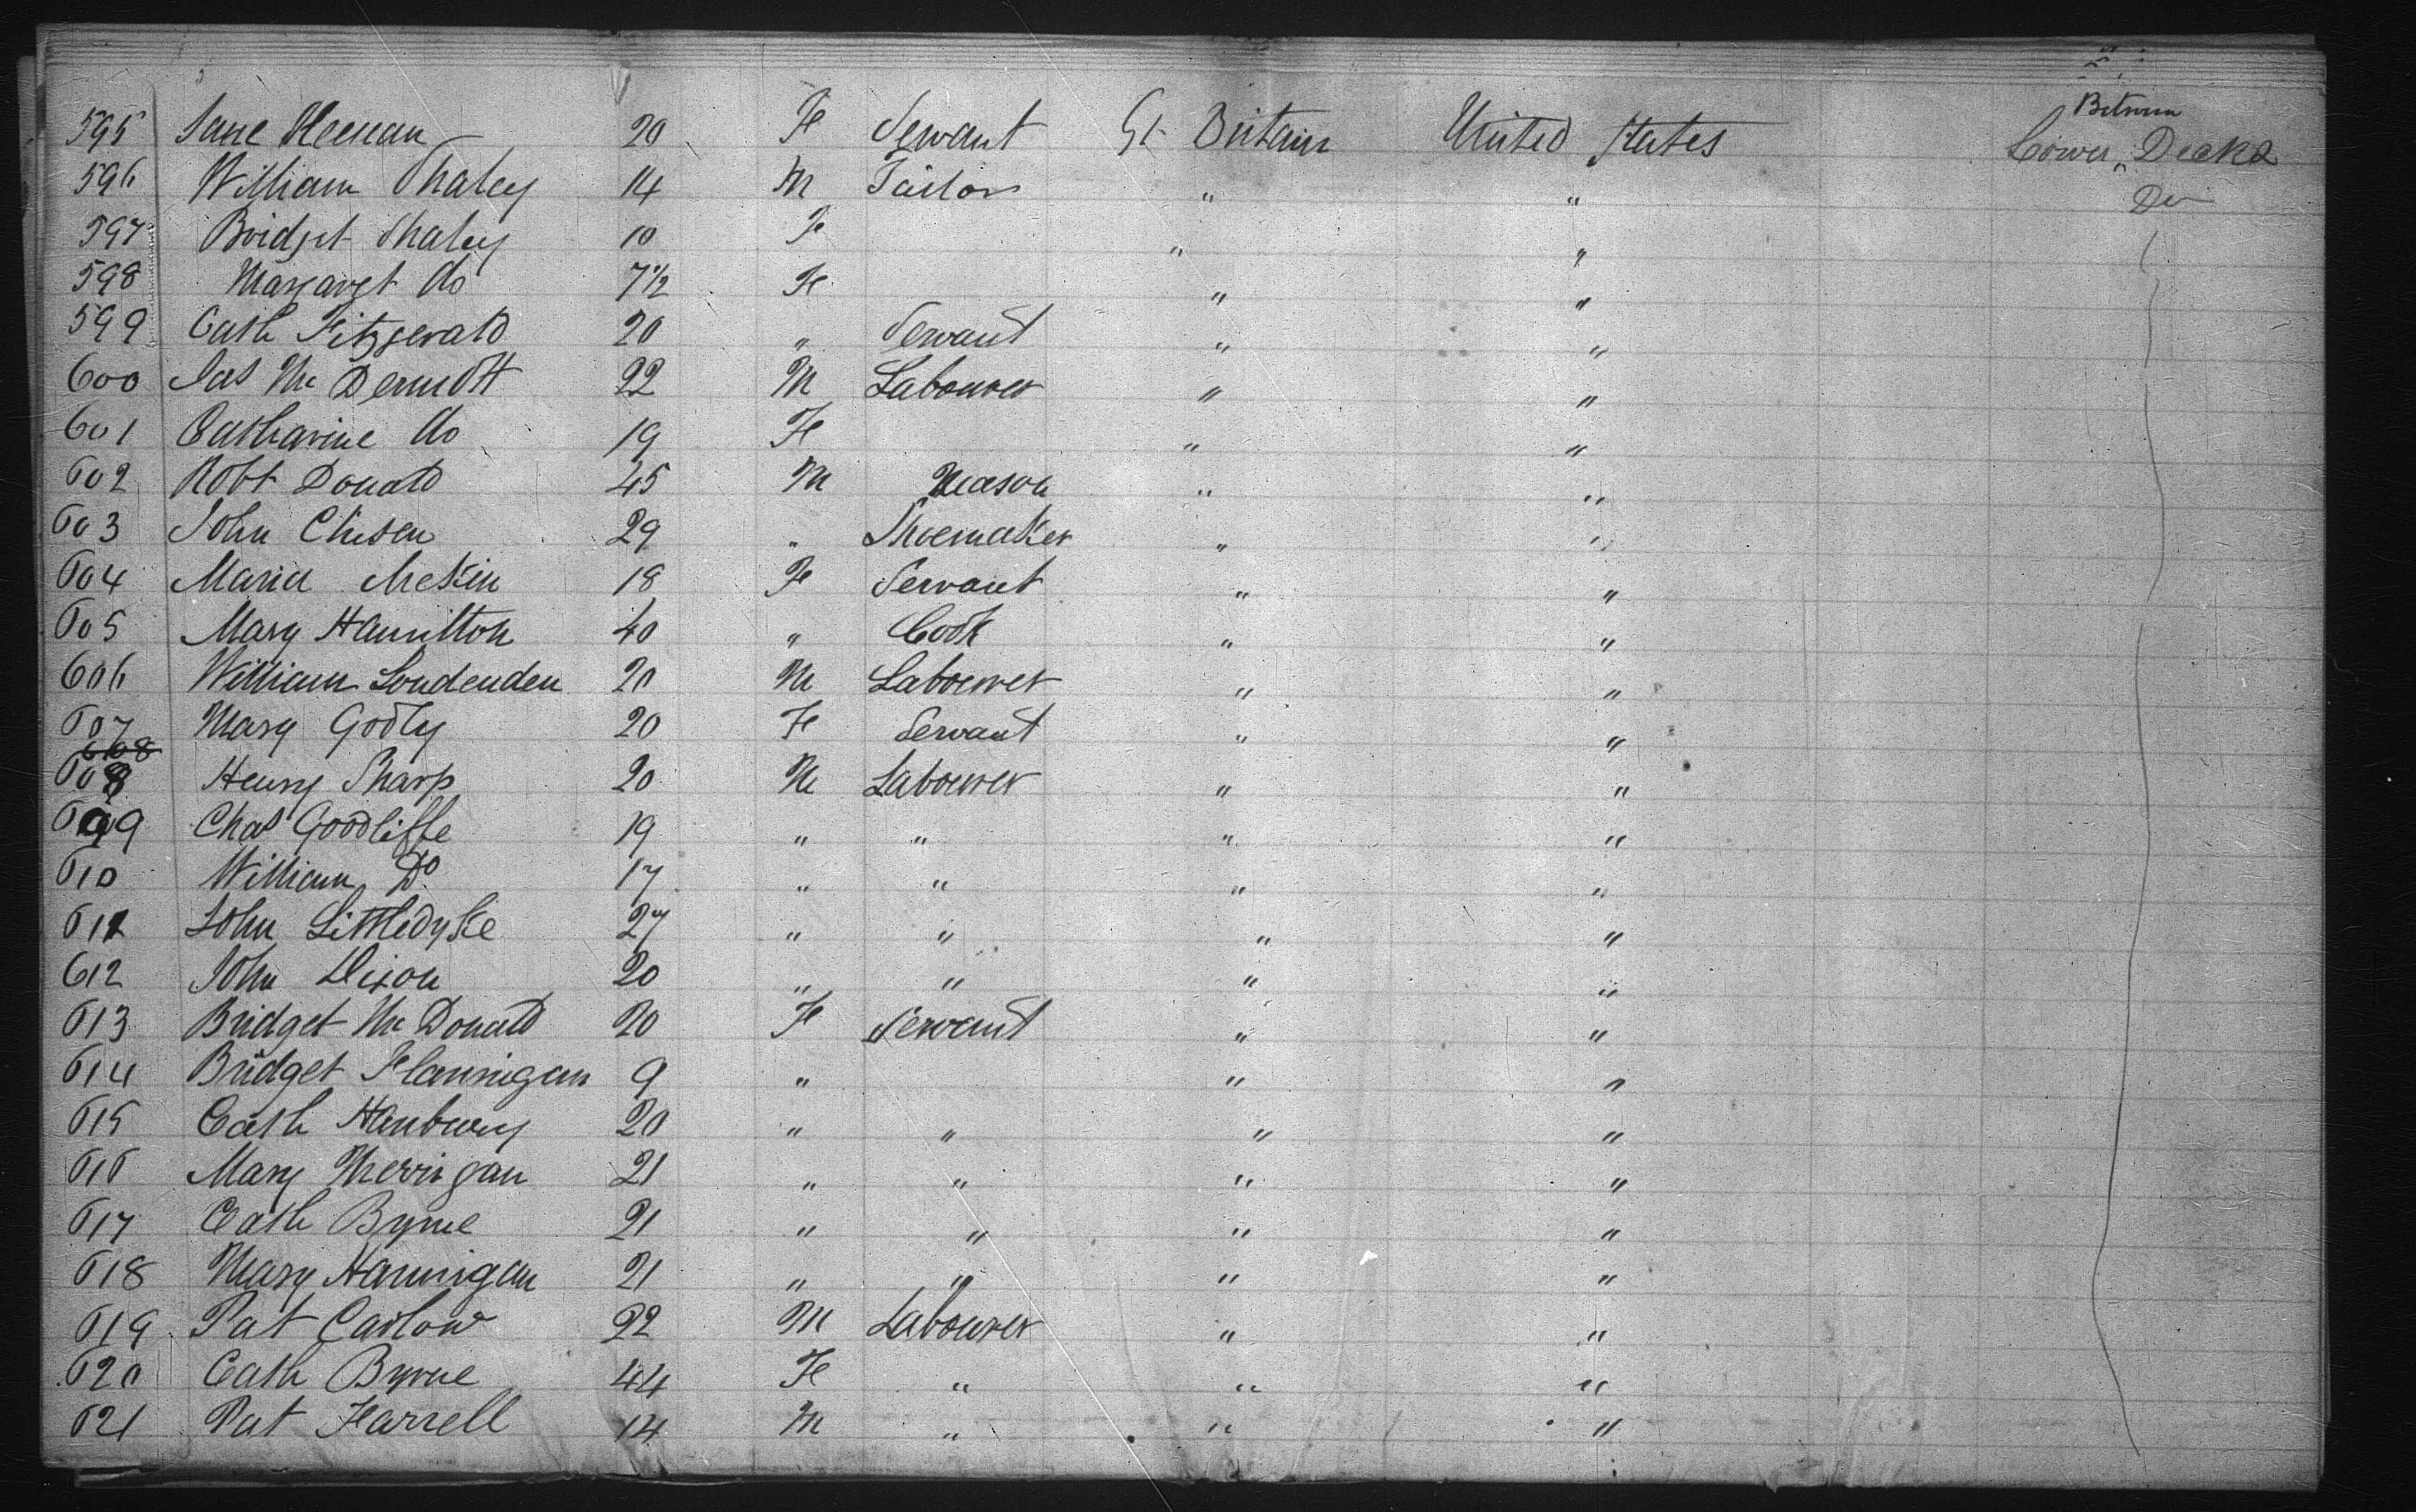 595 Jane Heenan 20 Fe Servant Gt Britain United States Lower Between Decks
596 William Thaley 14 M Tailor " " Do
597 Bridget Thaley 10 Fe " "
598 Margaret do 7½ Fe " "
599 Cath Fitzgerald 20 " Servant " "
600 Jas Mc Dermott 22 M Labourer " "
601 Catharine do 19 Fe " "
602 Robt Donald 45 M Mason " "
603 John Chisen 29 " Shoemaker " "
604 Maria McKin 18 Fe Servant " "
605 Mary Hamilton 40 " Cook " "
606 William Loudenden 20 M Labourer " "
607 Mary Godly 20 Fe Servant " "
608
608 Henry Sharp 20 M Labourer " "
609 Chas Goodliffe 19 " " " "
610 William Do 17 " " " "
611 John Littledyke 27 " " " "
612 John Dixon 20 " " " "
613 Bridget Mc Donald 20 Fe Servant " "
614 Bridget Flannigan 9 " " "
615 Cath Hanbury 20 " " " "
616 Mary Merrigan 21 " " " "
617 Cath Byrne 21 " " " "
618 Mary Hannigan 21 " " " "
619 Pat Carlow 22 M Labourer " "
620 Cath Byrne 44 Fe " " "
621 Pat Farrell 14 M " " "